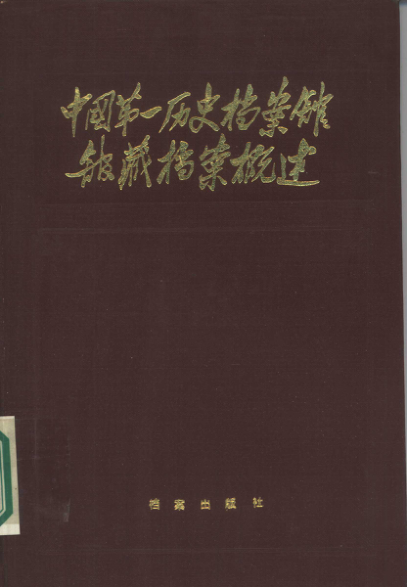 中國第一历史档案馆
馆藏档案概述
档案出版社